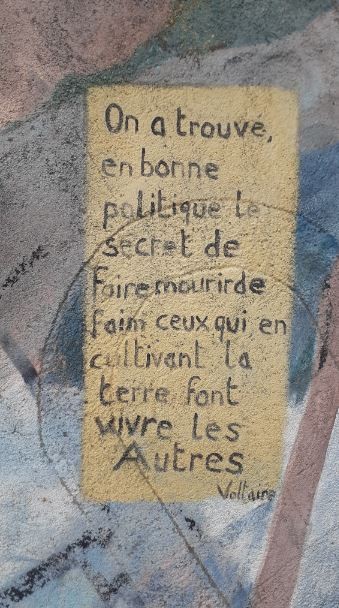 On a trouve,
en bonne
politique le
secret de
faire mourir de
faim ceux qui en
cultivant la
terre font
vivre les
Autres
Voltaire